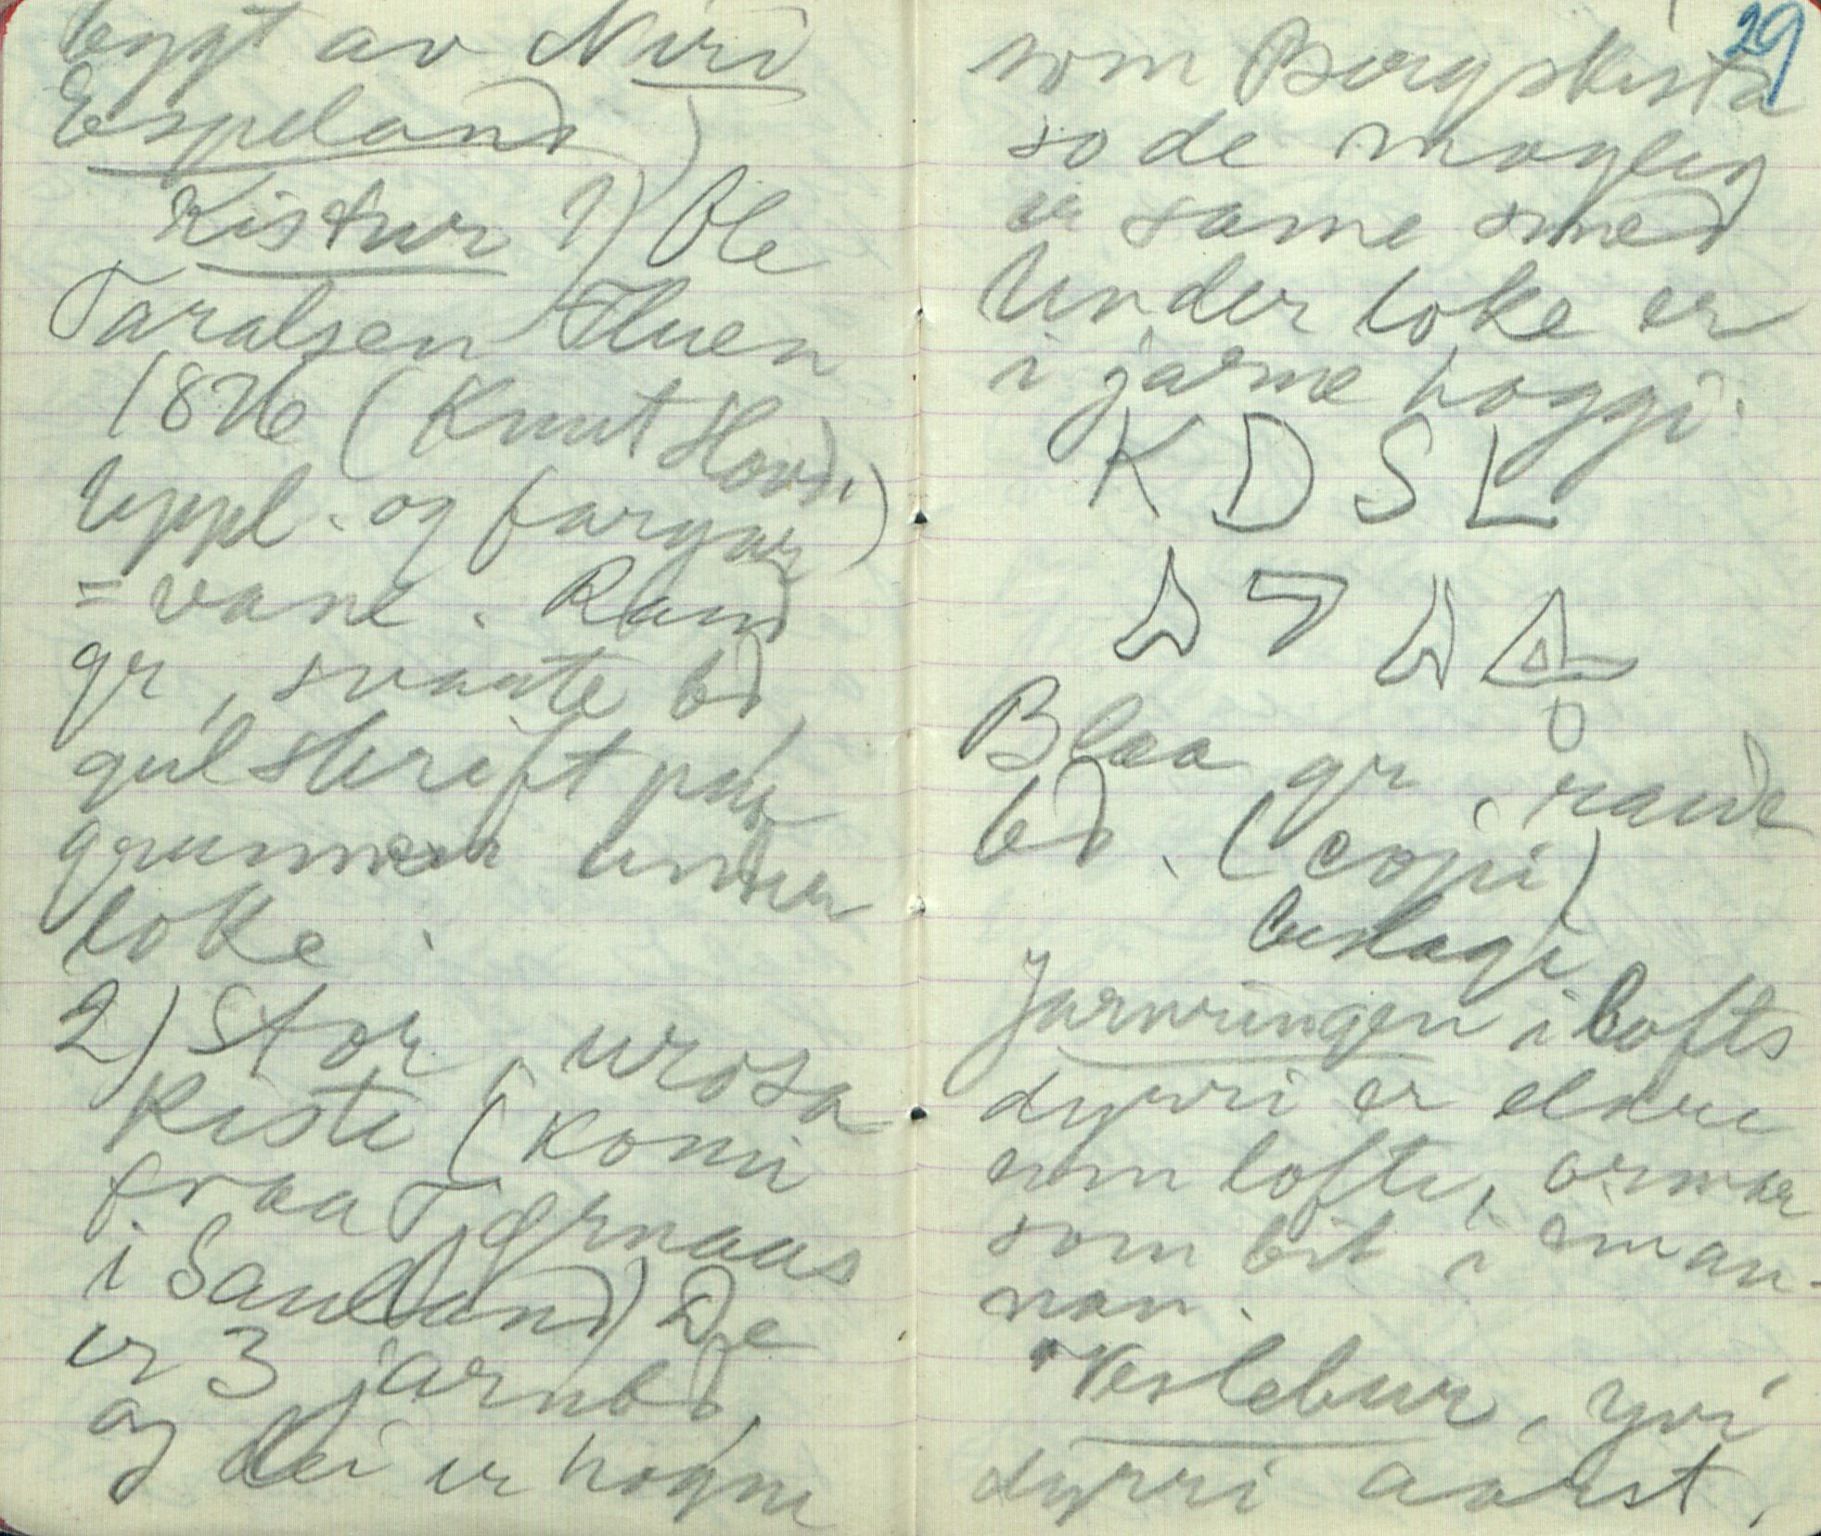 bygt av Nivi
Espeland)
Kistur 1) Ole
Taralsen Fluen
1826 (Knut Hovd.
Uppl. og fargar)
= vane. Rand
gr, svarte bd,
gul skrift paa
grunnen under
loke.
2) Stor, urosa
kiste (komi
fraa Tjørnaas
i Sauland) De
er 3 jarnbd,
og dei er hogne
29
som Bergskista
so de mogleg
er same smed
Under loke er
i jarne hoggi.
K D S L
Blaa gr, raude
bd. (copi)
beslagi
Jarnringen i lofts
dyrri er eldre
enn lofte, ormar
som bit i einan-
nan.
Veslebur, yvi
dyrri aarst,